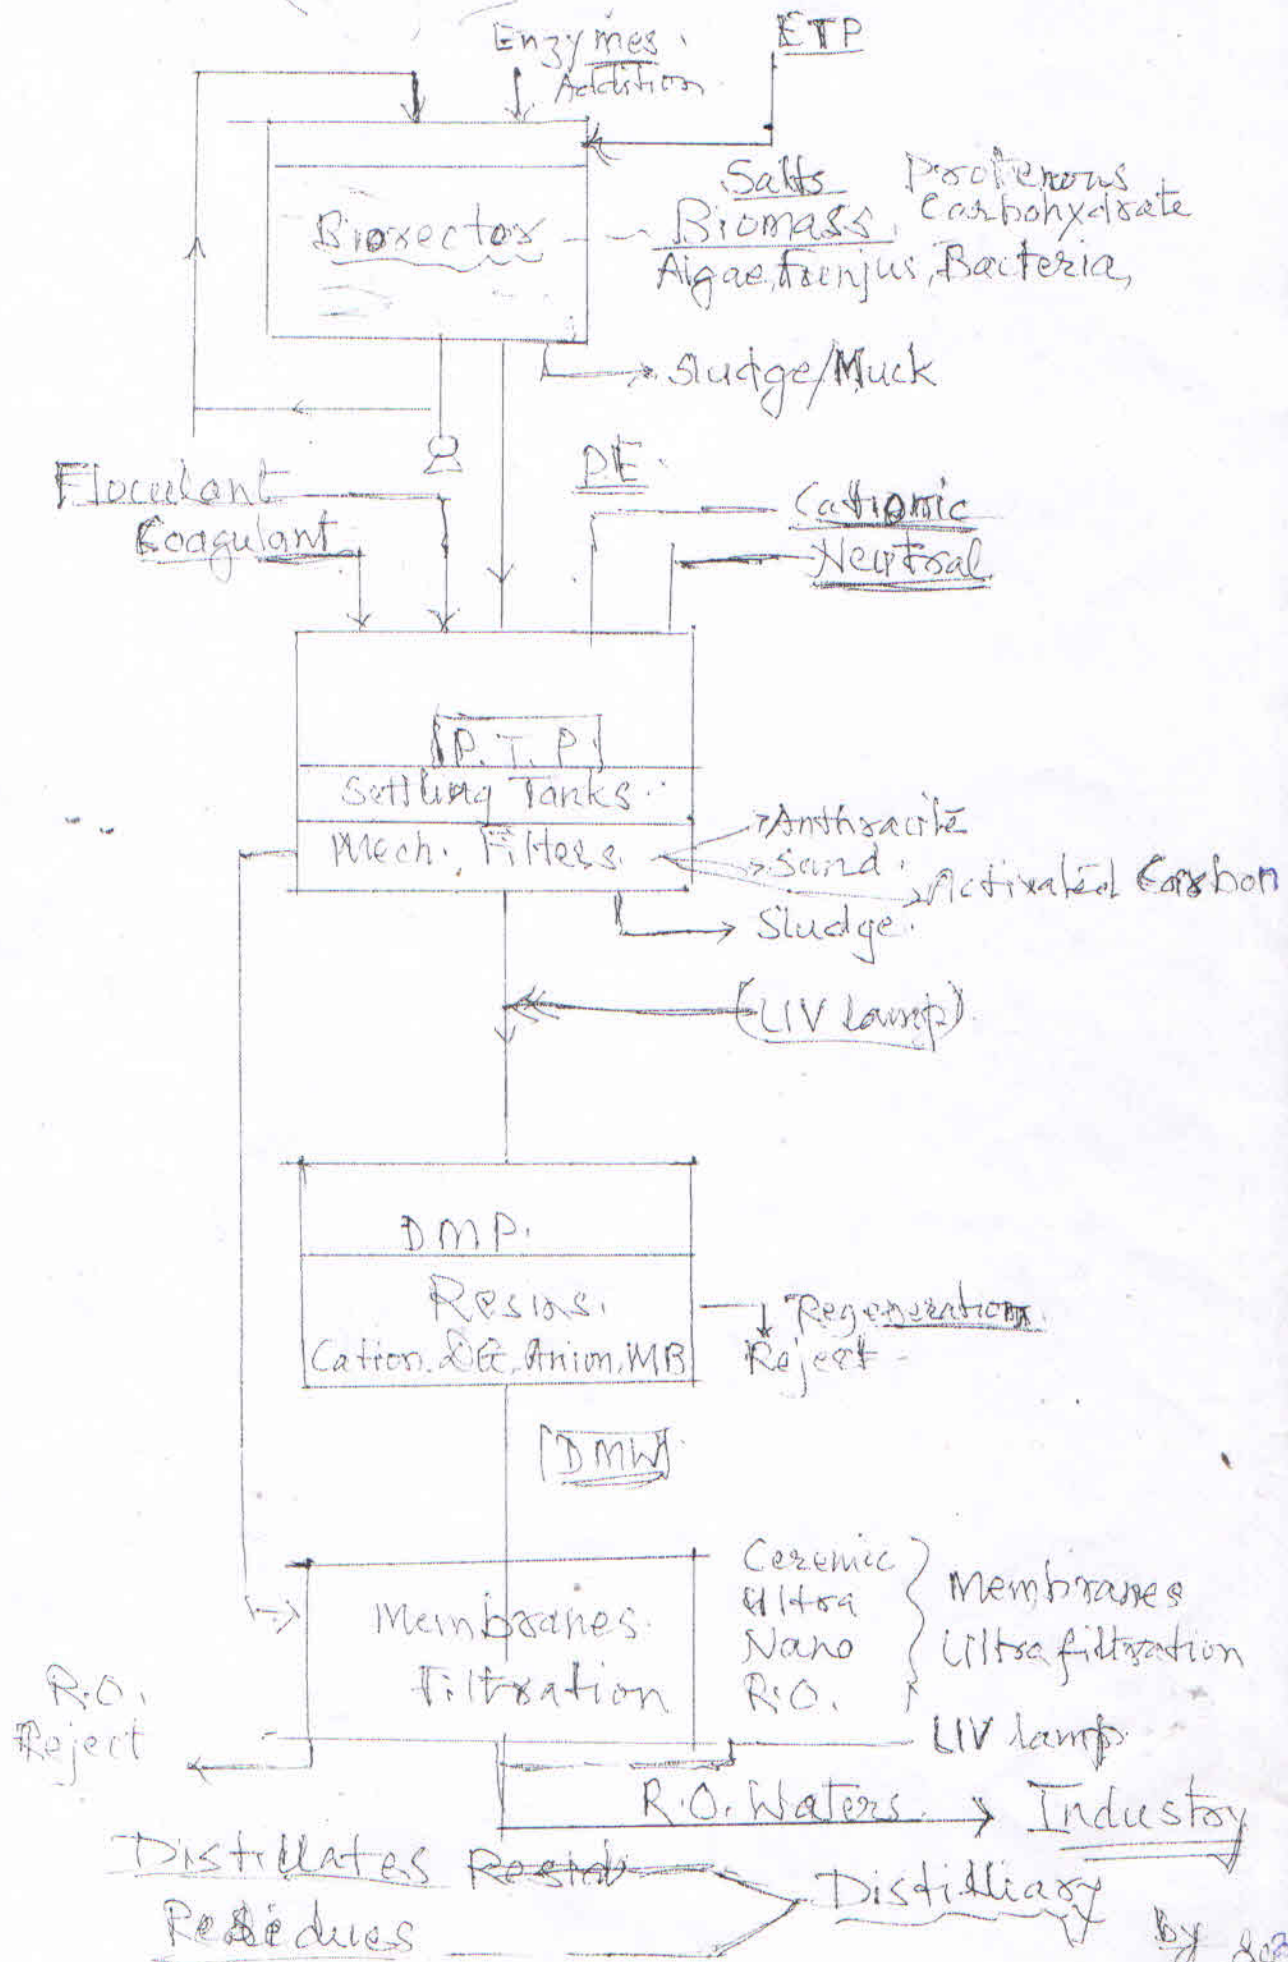 Enzymes.
Addition
ETP
Biorector
Salts Protenous
Biomass, Carbohydrate
Algae, Funjus, Bacteria,
Sludge/Muck
Floculant
Coagulant
PE.
Cationic
Neutral
P.T.P.
Settling Tanks.
Mech. Filters.
Anthracite
Sand.
Activated Carbon
Sludge.
(UV lamp)
D.M.P.
Resins.
Cation. DG, Anion, MB
Regeneration
Reject
[DMW]
Membranes
Filtration
Ceremic
Ultra
Nano
R.O.
Membranes
Ultrafiltration
R.O.
Reject
UV lamp
R.O. Waters.
Industry
Distillates
Residues
Distilliary
By